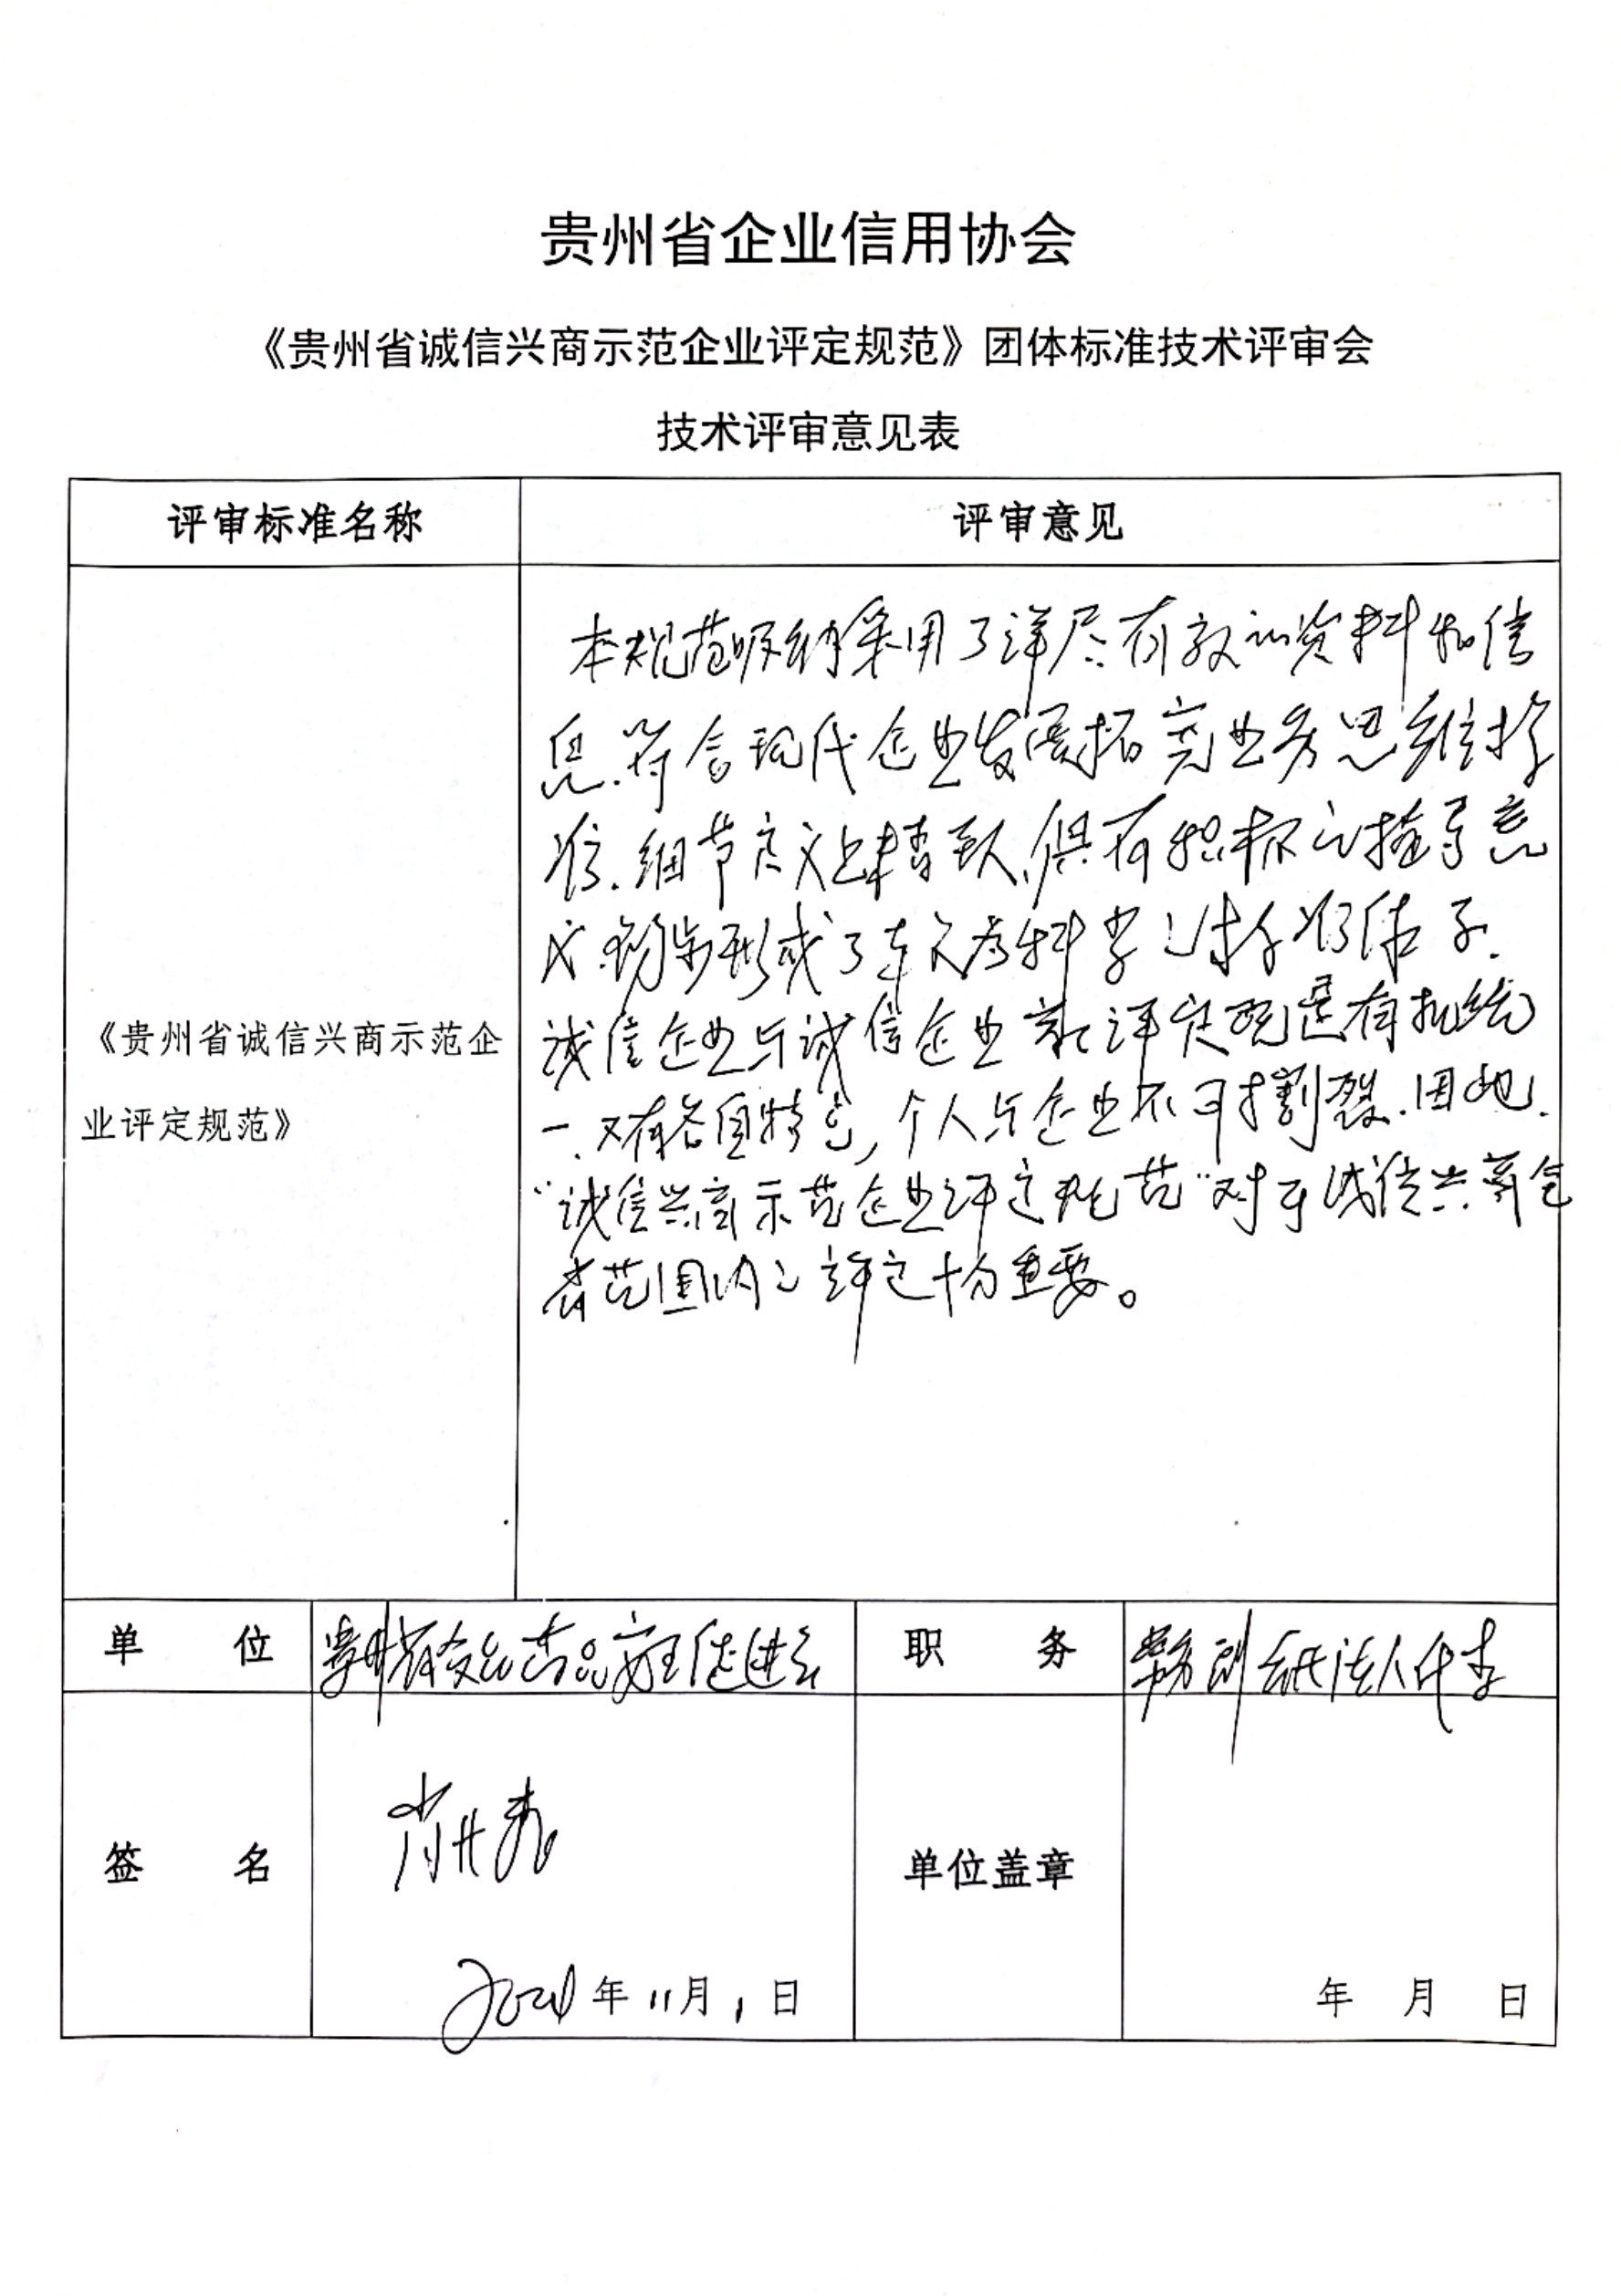 贵州省企业信用协会
《贵州省诚信兴商示范企业评定规范》团体标准技术评审会
技术评审意见表
评审标准名称
评审意见
本规范吸纳采用了详尽有效的资料和信
息.符合现代企业发展拓宽业务思维标
准.细节定义上精致,具有积极之指导意
义.初步形成了较为科学之标准体系.
诚信企业与诚信企业家评定既是有机统
一.又有各自特色,个人与企业不可割裂.因此.
“诚信兴商示范企业评定规范”对于诚信兴商全
省范围内之评定十分重要。
《贵州省诚信兴商示范企
业评定规范》
单 位
贵州省食品药品安全促进会
职 务
常务副法人代表
签 名
2024年11月1日
单位盖章
年 月 日